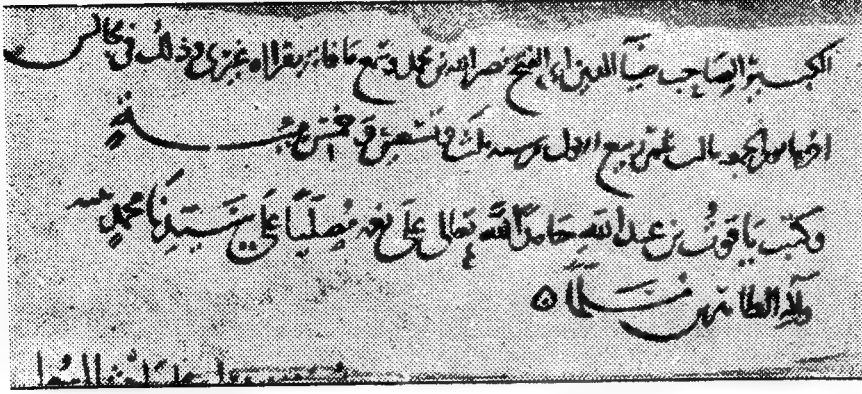 الكبير الصاحب ضيآ الدين ابي الفتح نصر الله بن محمد وسمع ما فاته بقراءة غيري وذلك في مجالس
اخرها يوم الاحد ثالث عشر ربيع الاول سنه ثلث وتسعين وخمس مئـة
وكتب ياقوت بن عبد الله حامدًا لله تعالى على نعمه مصليًا على سيدنا محمد نبيه
وآله الطاهرين مسلمًا